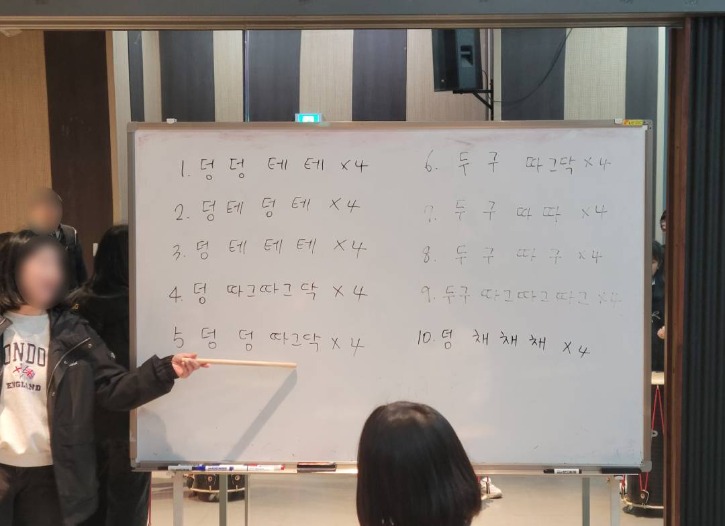 1. 덩 덩 테 테 x4
2. 덩 테 덩 테 x4
3. 덩 테 테 테 x4
4. 덩 따그따그 닥 x4
5 덩 덩 따그닥 x4
6. 두 구 따그닥 x4
7. 두 구 따 따 x4
8. 두 구 따 구 x4
9. 두구 따그따그따그 x4
10. 덩 채 채 채 x4
ONDO
ENGLAND